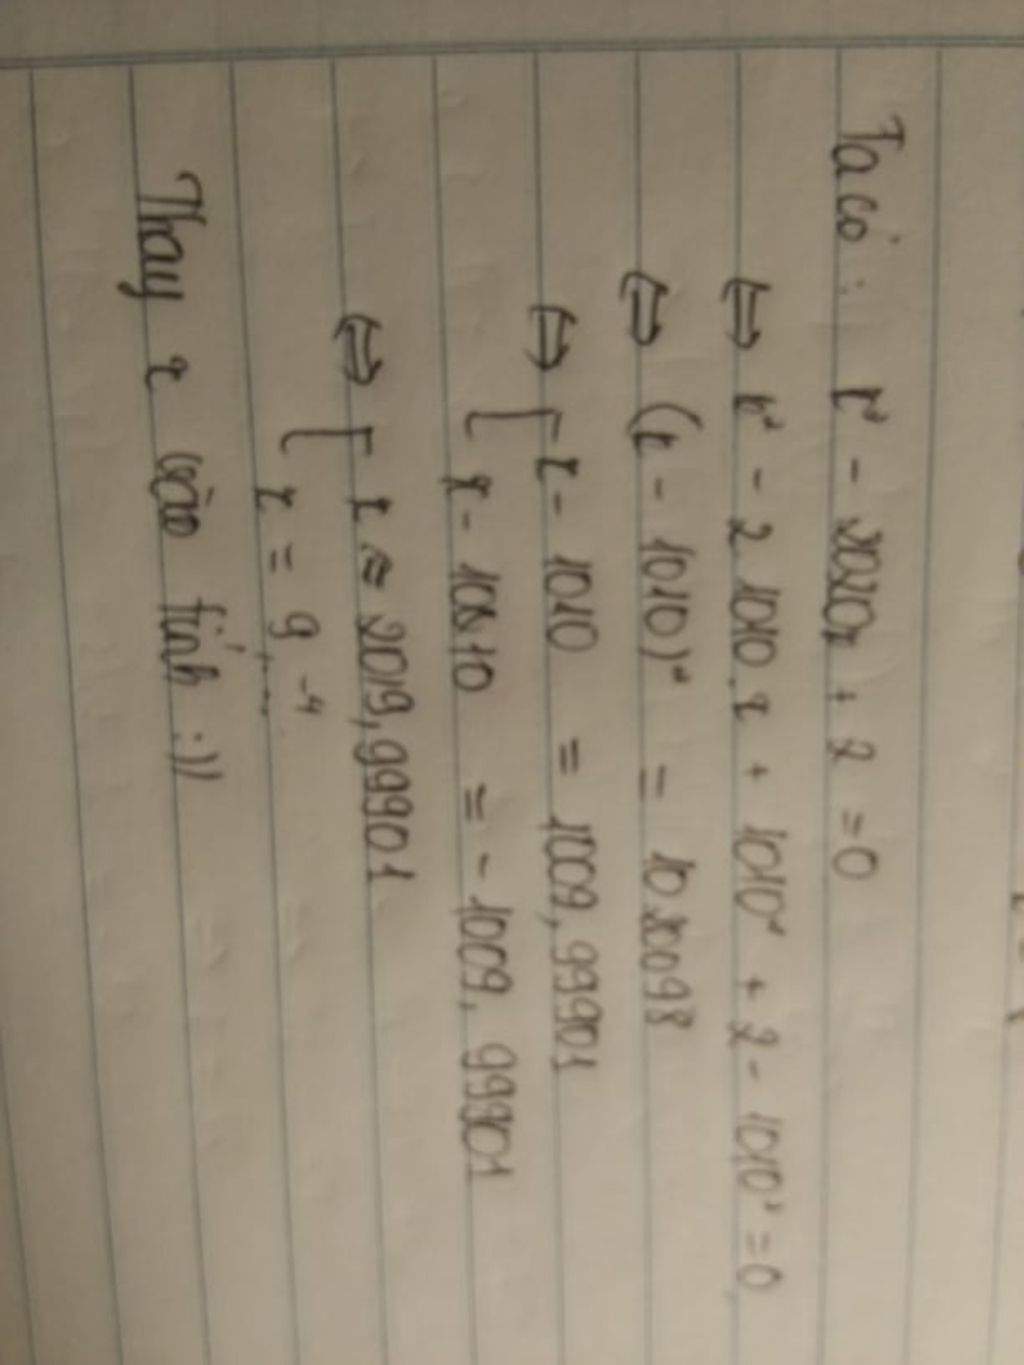 Ta có: x² - 2020x + 2 = 0
⇔ x² - 2 1010.x + 1010² + 2 - 1010² = 0
⇔ (x - 1010)² = 1020098
⇔ [ x - 1010 = 1009,99901
[ x - 1010 = - 1009,99901
⇔ [ x ≈ 2019,99901
[ x = 9⁻⁴....
Thay x vào tính :))